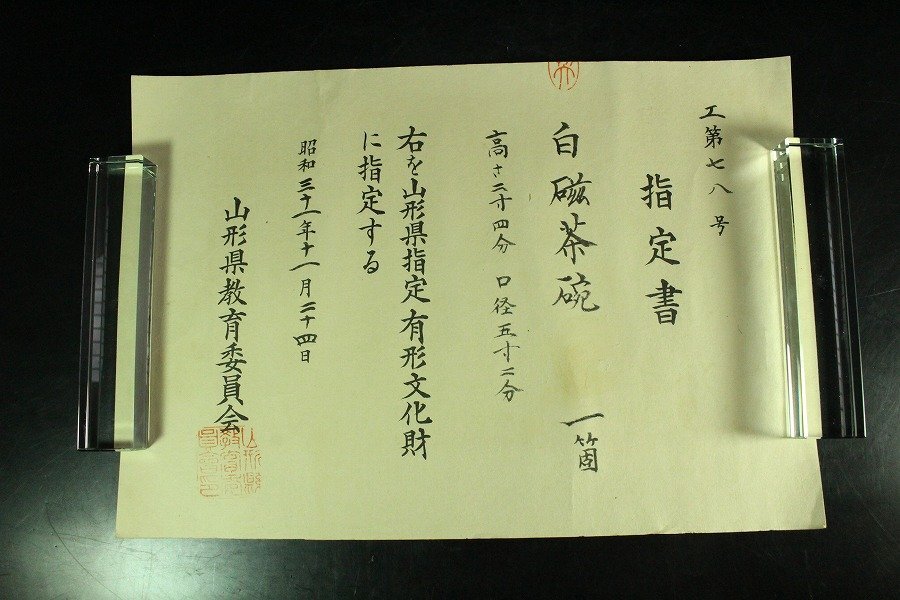 工第七八号
指定書
白磁茶碗 一箇
高さ二寸四分 口径五寸二分
右を山形県指定有形文化財
に指定する
昭和三十一年十一月二十四日
山形県教育委員会